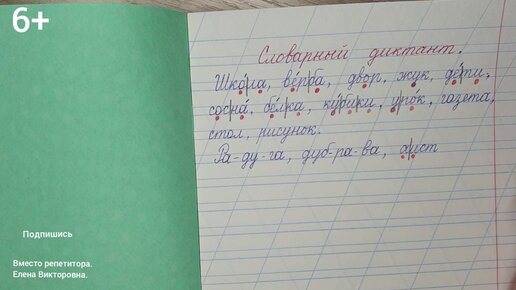 6+
Словарный диктант.
Школа, верба, двор, жук, дети,
сосна, белка, кубики, урок, газета,
стол, рисунок.
Ра-ду-га, дуб-ра-ва, аист
Подпишись
Вместо репетитора.
Елена Викторовна.